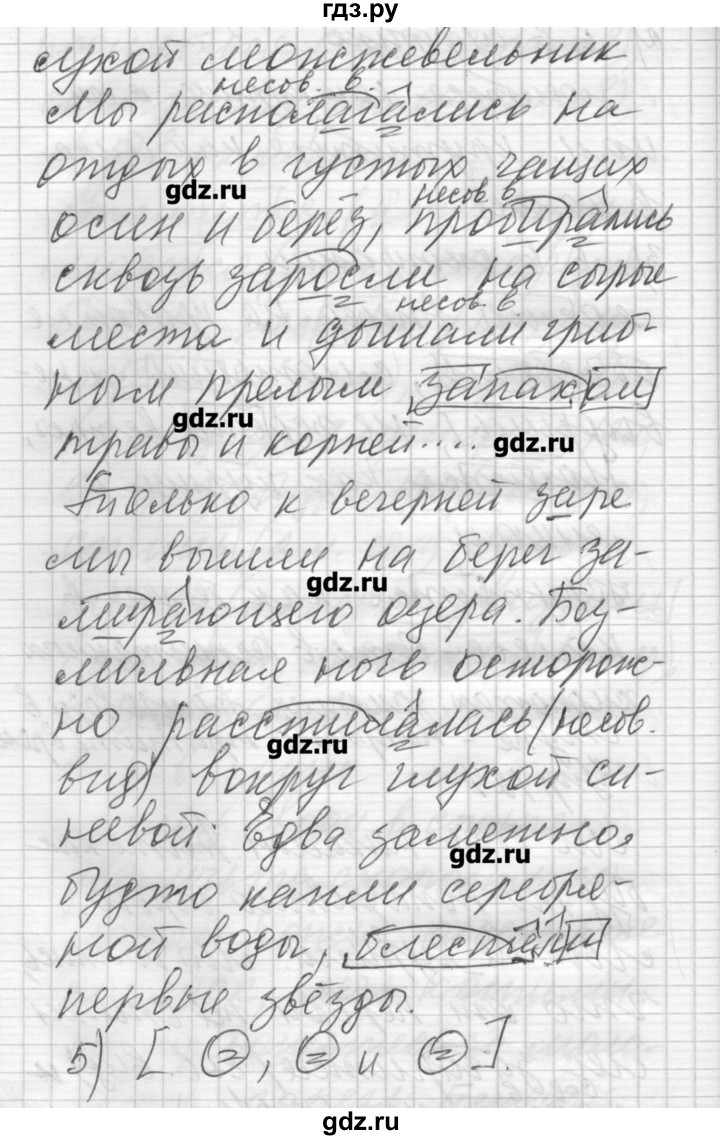 гдз.ру
сухой можжевельник
несов. в.
Мы располагались на
отдых в густых чащах
gdz.ru
несов. в
осин и берёз, пробирались
сквозь заросли на сырые
несов. в
места и дышали гриб-
ным прелым запахом
gdz.ru
травы и корней....
gdz.ru
Только к вечерней заре
мы вышли на берег за-
gdz.ru
мирающего озера. Без-
молвная ночь осторож-
но расстилалась (несов.
gdz.ru
вид) вокруг глухой си-
невой. Едва заметно,
gdz.ru
будто капли серебря-
ной воды, блестели
первые звёзды.
5) [ = , = и = ].
gdz.ru